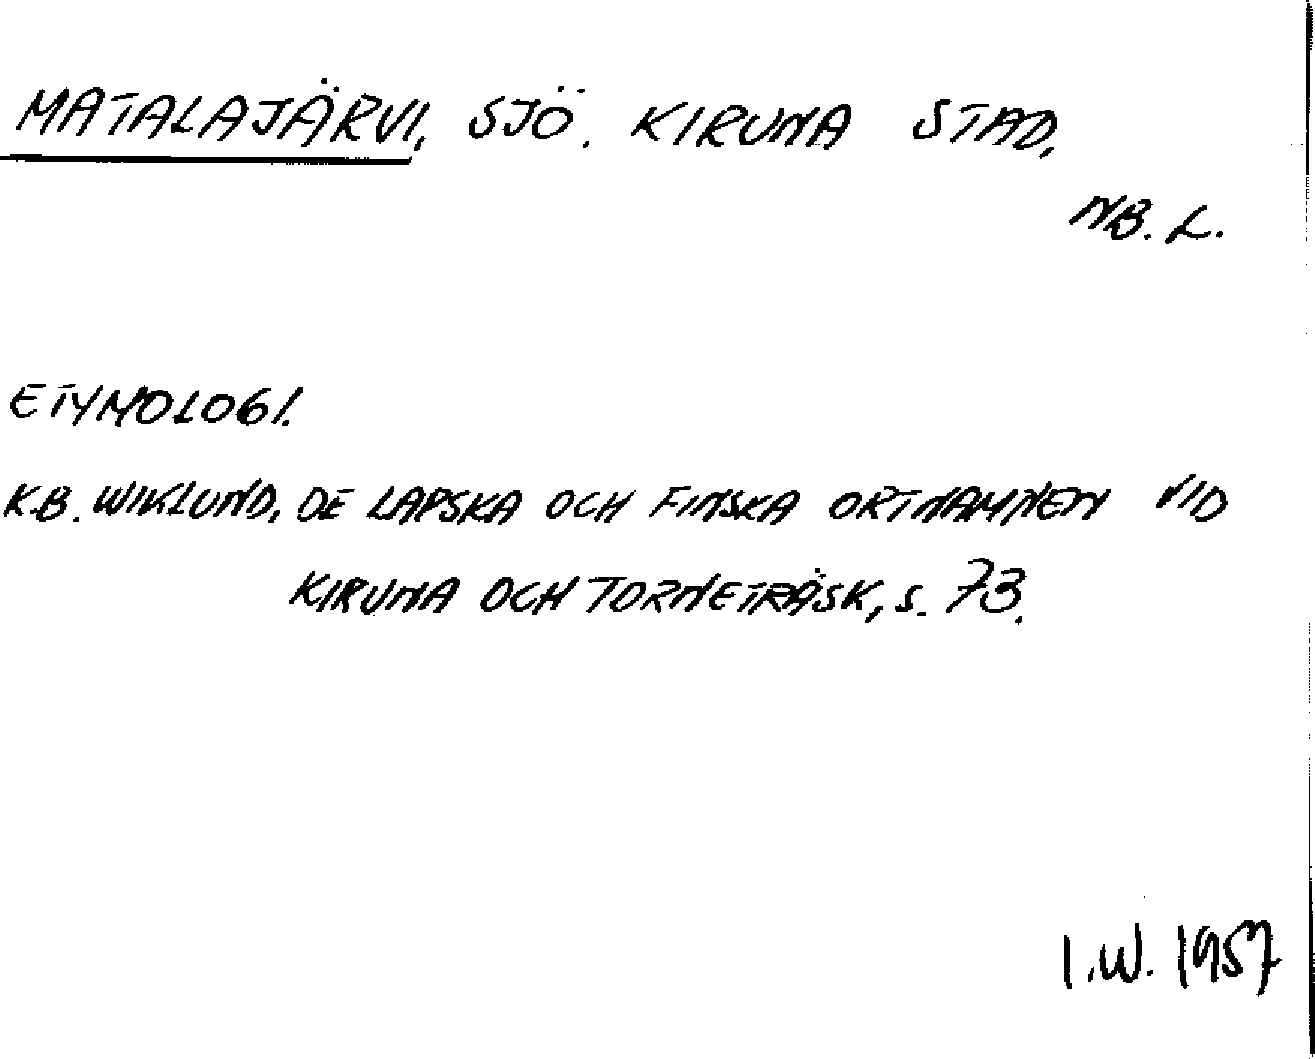 MATALAJÄRVI, SJÖ. KIRUNA STAD,
NB. L.
ETYMOLOGI.
K.B. WIKLUND, DE LAPSKA OCH FINSKA ORTNAMNEN VID
KIRUNA OCH TORNETRÄSK, S. 73.
I.W. 1957